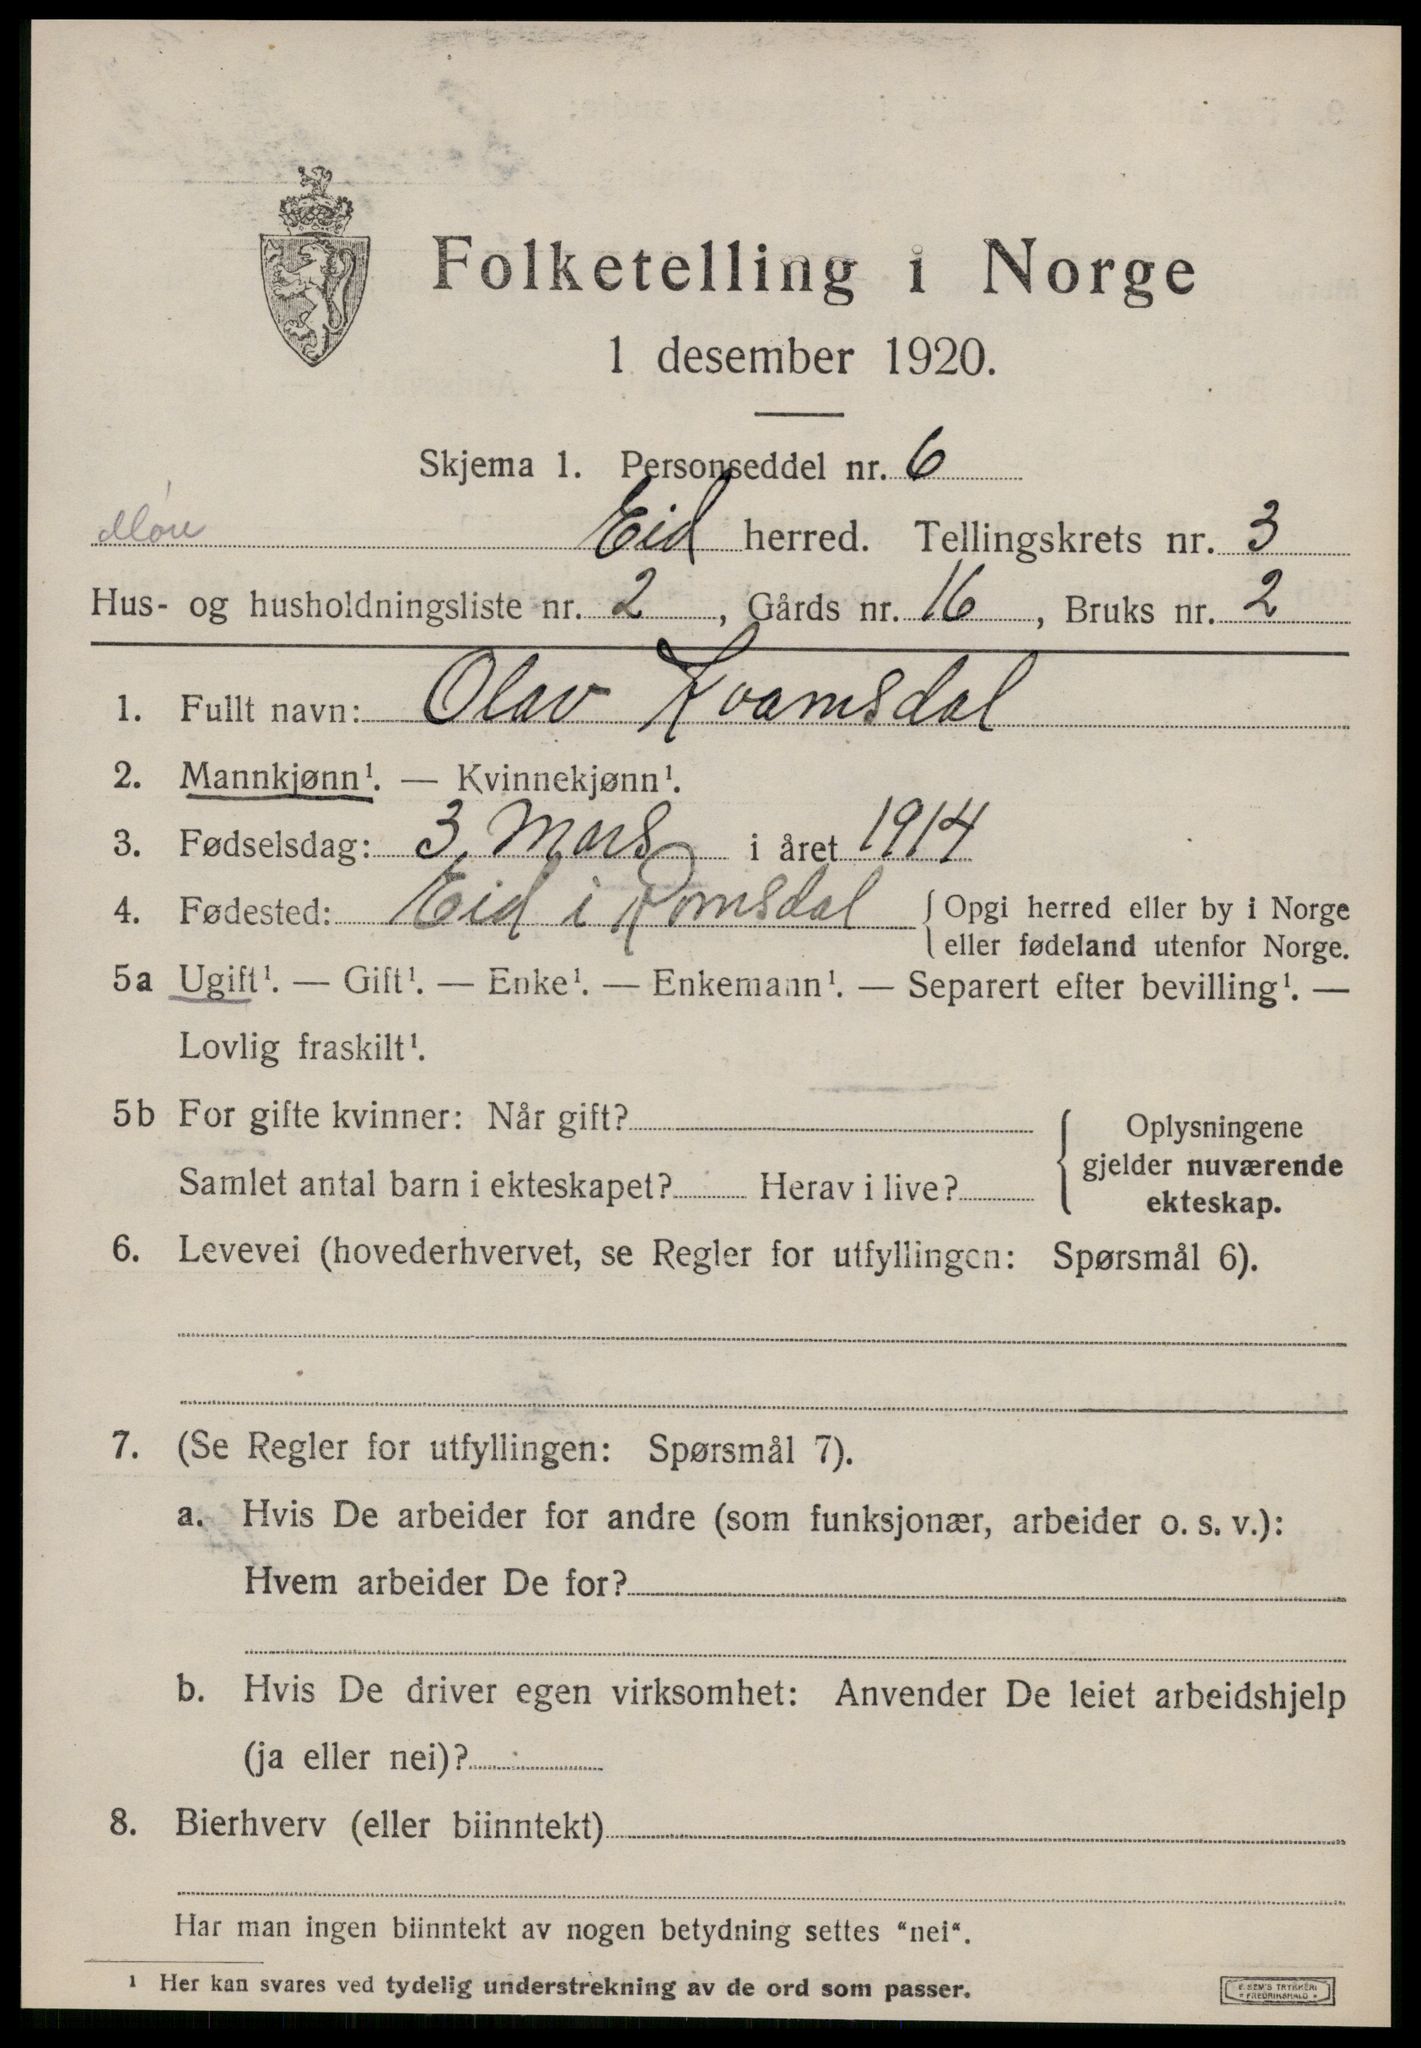 Folketelling i Norge
1 desember 1920.
Skjema 1. Personseddel nr. 6
Møre Eid herred. Tellingskrets nr. 3
Hus- og husholdningsliste nr. 2, Gårds nr. 16, Bruks nr. 2
1. Fullt navn: Olav Kvamsdal
2. Mannkjønn¹. — Kvinnekjønn¹.
3. Fødselsdag: 3. Mars i året 1914
4. Fødested: Eid i Romsdal { Opgi herred eller by i Norge
eller fødeland utenfor Norge.
5a Ugift¹. — Gift¹. — Enke¹. — Enkemann¹. — Separert efter bevilling¹. —
Lovlig fraskilt¹.
5b For gifte kvinner: Når gift? { Oplysningene
gjelder nuværende
Samlet antal barn i ekteskapet? Herav i live?
ekteskap.
6. Levevei (hovederhvervet, se Regler for utfyllingen: Spørsmål 6).
7. (Se Regler for utfyllingen: Spørsmål 7).
a. Hvis De arbeider for andre (som funksjonær, arbeider o. s. v.):
Hvem arbeider De for?
b. Hvis De driver egen virksomhet: Anvender De leiet arbeidshjelp
(ja eller nei)?
8. Bierhverv (eller biinntekt)
Har man ingen biinntekt av nogen betydning settes “nei“.
¹ Her kan svares ved tydelig understrekning av de ord som passer.
E. SEM'S TRYKKERI
FREDRIKSHALD